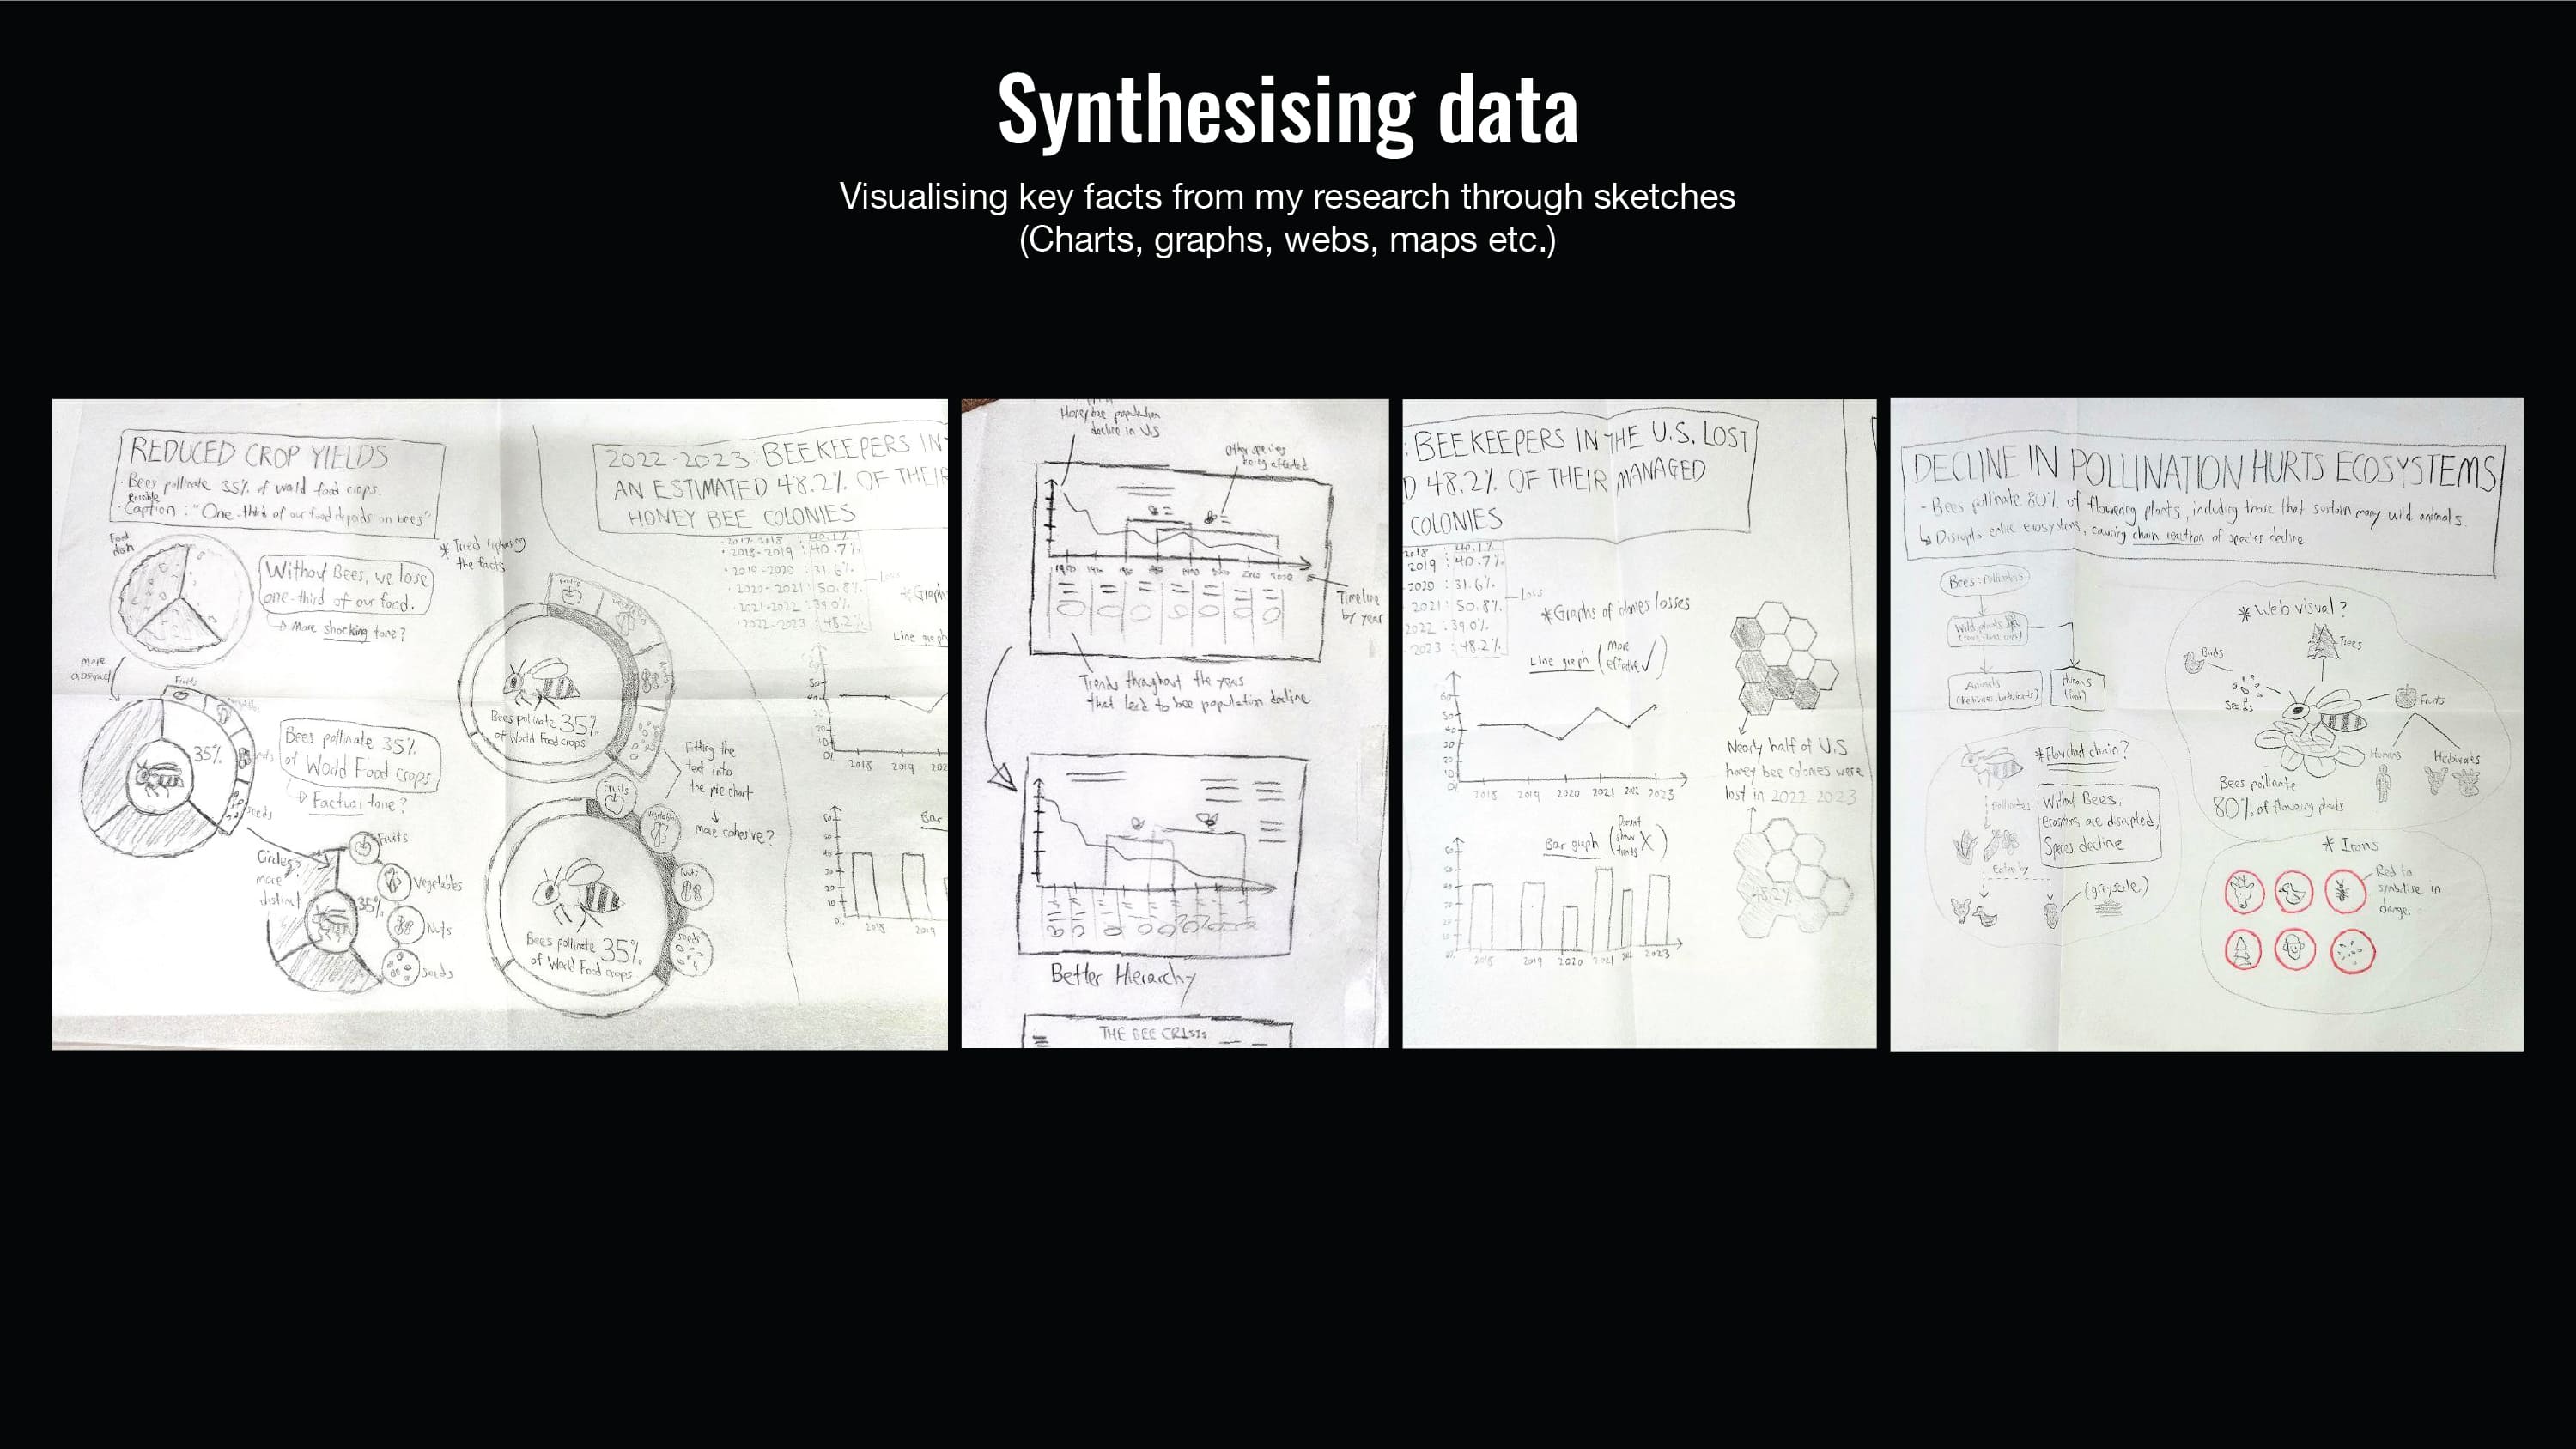 Synthesising data
Visualising key facts from my research through sketches
(Charts, graphs, webs, maps etc.)
REDUCED CROP YIELDS
· Bees pollinate 35% of world food crops.
Possible
· Caption : "One-third of our food depends on bees"
Food
dish
Without Bees, we lose
one-third of our food.
More shocking tone?
* Tried
the facts
more
abstract
Fruits
35%
nuts
seeds
Bees pollinate 35%
of World Food crops
Factual tone?
Circles?
more
distinct
35%
Fruits
Vegetables
Nuts
Seeds
Fruits
Vegetables
Nuts
Bees pollinate 35%
of World Food crops
Fitting the
text into
the pie chart
more cohesive?
Fruits
Vegetables
Nuts
Seeds
Bees pollinate 35%
of World Food crops
2022-2023: BEEKEEPERS IN
AN ESTIMATED 48.2% OF THEIR
HONEY BEE COLONIES
· 2017-2018 : 40.1%
· 2018-2019 : 40.7%
· 2019-2020 : 31.6%
· 2020-2021 : 50.8%
· 2021-2022 : 39.0%
· 2022-2023 : 48.2%
Loss
*Graph
Line graph
2018 2019 202
Bar
2018 2019
Honey bee population
decline in US
Other species
being affected
Timeline
by year
Trends throughout the years
that lead to bee population decline
Better Hierarchy
THE BEE CRISIS
: BEEKEEPERS IN THE U.S. LOST
D 48.2% OF THEIR MANAGED
COLONIES
2018 : 40.1%
2019 : 40.7%
2020 : 31.6%
2021 : 50.8%
2022 : 39.0%
2023 : 48.2%
Loss
*Graphs of colonies losses
Line graph (More effective ✓)
60
50
40
30
20
10
0%
2018 2019 2020 2021 2022 2023
Bar graph (Doesnt show trends X)
2018 2019 2020 2021 2022 2023
Nearly half of U.S
honey bee colonies were
lost in 2022-2023
48.2%
DECLINE IN POLLINATION HURTS ECOSYSTEMS
- Bees pollinate 80% of flowering plants, including those that sustain many wild animals.
Disrupts entire ecosystems, causing chain reaction of species decline
Bees: pollinators
Wild plants
Animals
Humans
(food)
* Flowchart chain?
Pollinates
Without Bees,
ecosystems are disrupted,
Species decline
Eaten by
(greyscale)
* Web visual?
Birds
Trees
Seeds
Fruits
Humans
Herbivores
Bees pollinate
80% of flowering plants
* Icons
Red to
symbolise in
danger